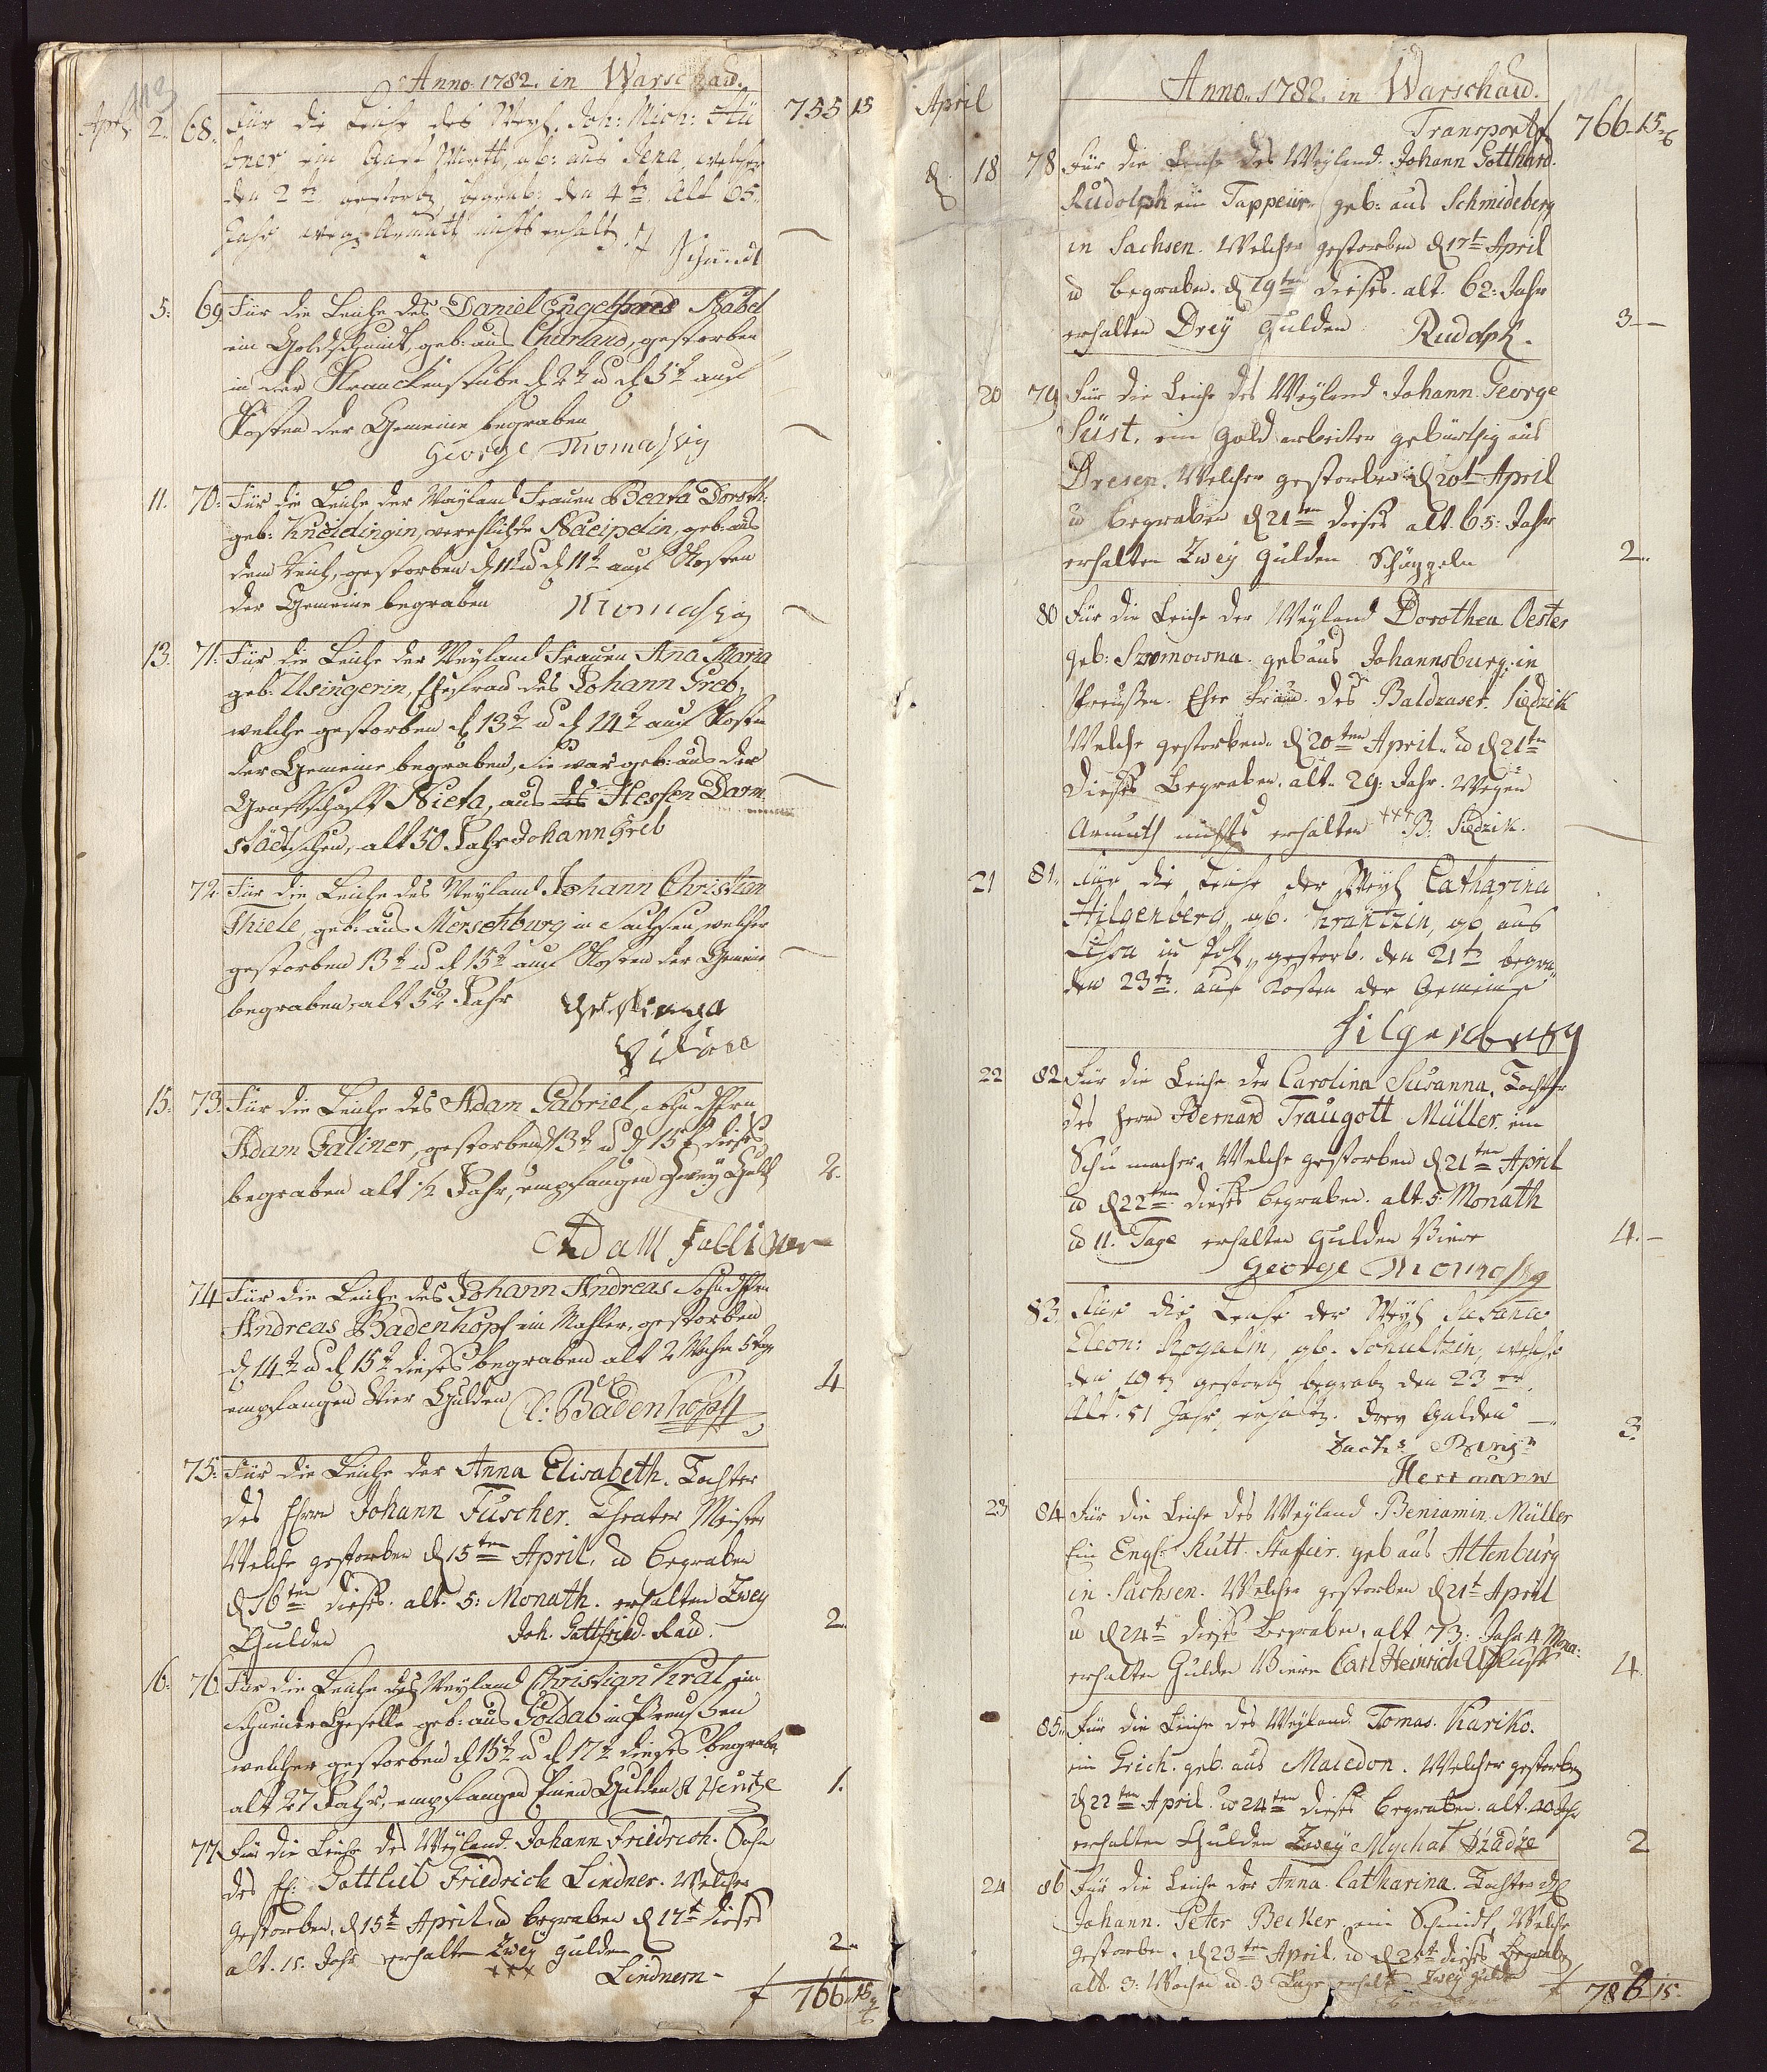 Anno 1782. in Warschau.
April 2. 68. Für die Leiche des Weyl. Joh: Mich: Hü 755 15
bner ein Gast Wirth, geb: aus Jena, welcher
den 2ten gestorb, begrab: den 4ten Alt 65
Jahr wegen Armuth nichts erhalten. Schmidt —
5: 69. Für die Leiche des Daniel Engelhard Nabel
ein Goldschmidt, geb: aus Churland, gestorben
in der Kranckenstube d 2t u d 5t auf
Kosten der Gemeine begraben
George Thomassig —
11. 70: Für die Leiche der Weyland Frauen Beata Doroth:
geb: Kneidingin, verehlichte geb: aus
dem Reich, gestorben d 11t u d 11t auf Kosten
der Gemeine begraben Thomassig —
13. 71: Für die Leiche der Weyland Frauen Ana Maria
geb. Usingerin, Ehefrau des Johann Greb,
welche gestorben d 13t u d 14t auf Kosten
der Gemeine begraben, Sie war geb: aus der
Graffschafft Nieta, aus des Hessen Darm
städtschen, alt 50 Jahr Johann Greb —
72. Für die Leiche des Weyland Johann Christian
Thiele, geb: aus Merschburg in Sachsen, welcher
gestorben 13t u d 15t auf Kosten der Gemeine —
begraben, alt 52 Jahr
15. 73. Für die Leiche des Adam Gabriel, Sohn d Hrn
Adam Faliner, gestorben d 13t u d 15t dieses
begraben alt ½ Jahr, empfangen Zwey Guld 2.
Adam Falliner
74 Für die Leiche des Johann Andreas Sohn d Hrn
Andreas Badenkopf ein Mahler, gestorben
d 14t u d 15t dieses begraben alt 2 Wochen 5 Tage
empfangen Vier Gulden C: Badenkopff 4
75: Für die Leiche der Anna Elisabeth. Tochter
des Herrn Johann Fuscher. Theater Meister
Welche gestorben d 15ten April, u begraben
d 16ten dieses. alt. 5: Monath. erhalten Zwey
Gulden Joh. Gottfried. Rau. 2.
16: 76. Für die Leiche des Weyland Christian Kral, ein
Schneider Geselle geb: aus Goldab in Preussen
welcher gestorben d 15t u d 17t dieses begrabe
alt 27 Jahr, empfangen Einen Gulden Hentze 1.
77. Für die Leiche des Weyland Johann Friedrich. Sohn
des H: Gottlieb Friedrich Lindner. Welcher
gestorben. d 15t April u begraben d 17t dieses
alt. 15. Jahr erhalten Zwey Gulden 2
+++ Lindnern
f 766 15
Anno. 1782. in Warschau.
April
Transport f 766 15
d 18 78 Für die Leiche des Weyland Johann Gotthard.
Rudolph ein Tappeur. geb: aus Schmideberg
in Sachsen. Welcher gestorben d 17t April
u begraben. d 19ten dieses. alt. 62: Jahr
erhalten Drey Gulden Rudolph. 3
20 79 Für die Leiche des Weyland Johann George
Süst. ein Gold arbeiter gebürthig aus
Dresen. Welcher gestorben d 20t April
u begraben d 21ten dieses alt. 65: Jahr
erhalten Zwey Gulden 2
80 Für die Leiche der Weyland Dorothea Oester
geb: Szromowna. geb aus Johannsburg. in
Preussen. Ehe Frau. des Baldzaser. Siedzik
Welche gestorben. d 20ten April. u d 21ten
dieses Begraben. alt. 29: Jahr. Wegen
Armuth nichts erhalten +++ B. Siedzik. —
21 81. Für die Leiche der Weyl Catharina
Hilgenberg, geb. Krantzin, geb aus
Lissa in Pohl, gestorb. den 21ten begra
den 23ten auf Kosten der Gemeine
Hilgenberg
22 82 Für die Leiche der Carolina Susanna, Tochter
des Herrn Bernard Traugott Müller. ein
Schumacher. Welche gestorben d 21ten April
u d 22ten dieses begraben. alt. 5. Monath
u 11. Tage erhalten Gulden Viere 4.
George Thomassig
83. Für die Leiche der Weyl Susana
Eleon: Rogalin, geb. Schultzin, welche
den 19 gestorb begrab den 23
Alt. 51 Jahr, erhalten. Drey Gulden 3.
Zach:
Herrmann
23 84 Für die Leiche des Weyland Beniamin Müller
Ein Engl. Kutt. Staffier. geb aus Altenburg
in Sachsen. Welcher gestorben d 21t April
u d 24t dieses Begraben, alt 73: Jahr 4 Mona:
erhalten Gulden Viere Carl Heinrich 4
85. Für die Leiche des Weyland. Tomas. Kariko.
ein Grich. geb. aus Macedon. Welcher gestorben
d 22ten April. u 24ten dieses begraben. alt. 40 Jahr
erhalten Gulden Zwey Mychał 2
24 86 Für die Leiche der Anna. Catharina. Tochter d H
Johann. Peter Becker ein Schmidt. Welche
gestorben. d 23ten April. u d 25t dieses Begraben
alt. 3. Wochen u. 3 Tage erhalten Zwey Gulden
f 786 15